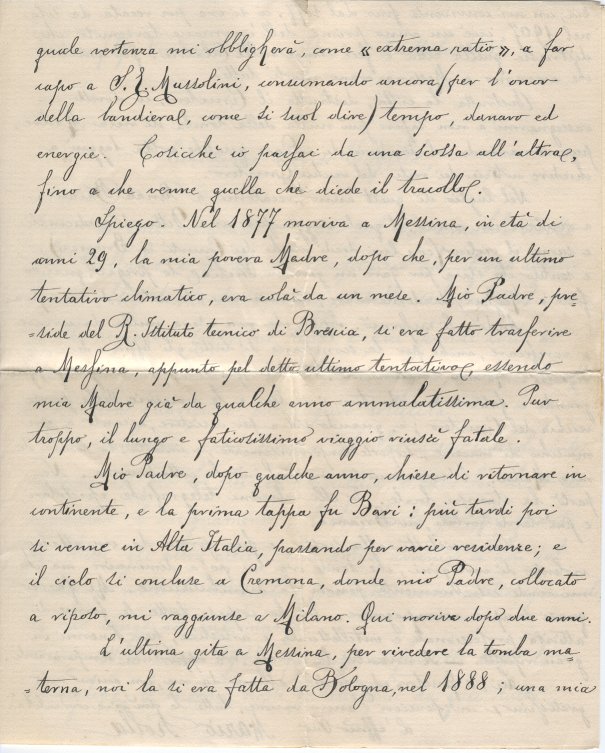 quale vertenza mi obbligherà, come « extrema ratio », a far
capo a S. E. Mussolini, consumando ancora (per l'onor
della bandiera, come si suol dire) tempo, danaro ed
energie. Cosicchè io passai da una scossa all'altra,
fino a che venne quella che diede il tracollo.
Spiego. Nel 1877 moriva a Messina, in età di
anni 29, la mia povera Madre, dopo che, per un ultimo
tentativo climatico, era colà da un mese. Mio Padre, pre=
=side del R. Istituto tecnico di Brescia, si era fatto trasferire
a Messina, appunto pel detto ultimo tentativo, essendo
mia Madre già da qualche anno ammalatissima. Pur
troppo, il lungo e faticosissimo viaggio riuscì fatale.
Mio Padre, dopo qualche anno, chiese di ritornare in
continente, e la prima tappa fu Bari: più tardi poi
si venne in Alta Italia, passando per varie residenze; e
il ciclo si concluse a Cremona, donde mio Padre, collocato
a riposo, mi raggiunse a Milano. Qui moriva dopo due anni.
L'ultima gita a Messina, per rivedere la tomba ma=
=terna, noi la si era fatta da Bologna, nel 1888; una mia